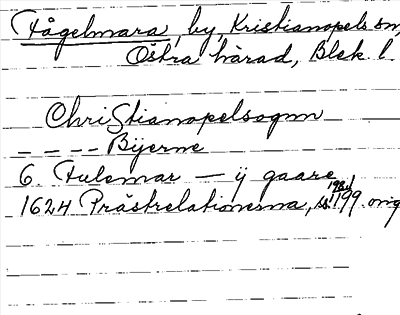 Fågelmara, by, Kristianopels sn,
Östra härad, Blek. l.
Christianopelsognn
- - - - Bÿerne
6. Fulemar — ij gaare
1624 Prästrelationerna, s. 199. orig